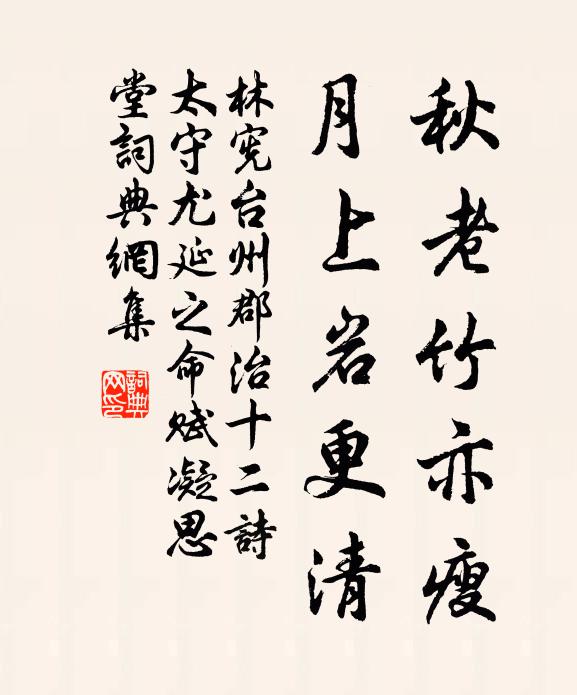 秋老竹亦瘦
月上岩更清
林宪台州郡治十二詩
太守尤延之命賦凝思
堂詞典網集
詞典网印